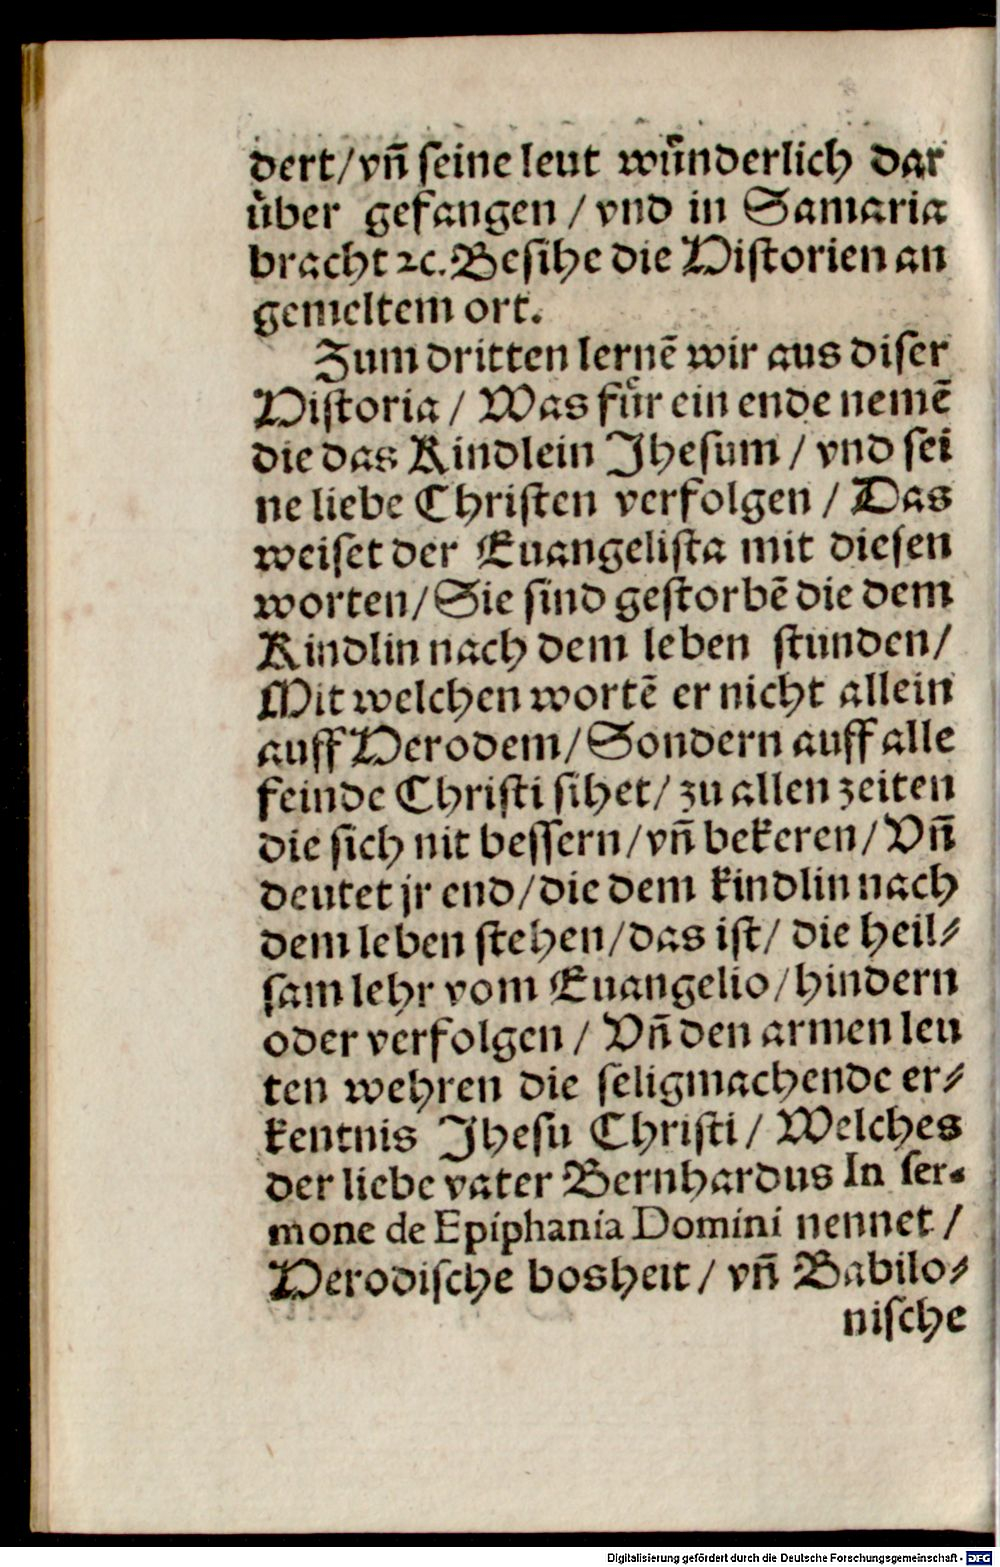 dert/vñ seine leut wůnderlich dar
ůber gefangen / vnd in Samaria
bracht ⁊c. Besihe die Historien an
gemeltem ort.
Zum dritten lernẽ wir aus diser
Historia / Was fůr ein ende nemẽ
die das Kindlein Jhesum / vnd sei
ne liebe Christen verfolgen / Das
weiset der Euangelista mit diesen
worten/Sie sind gestorbẽ die dem
Kindlin nach dem leben stunden/
Mit welchen wortẽ er nicht allein
auff Herodem/Sondern auff alle
feinde Christi sihet/ zu allen zeiten
die sich nit bessern/vñ bekeren/Vñ
deutet jr end/die dem kindlin nach
dem leben stehen/das ist/ die heil⸗
sam lehr vom Euangelio/hindern
oder verfolgen / Vñ den armen leu
ten wehren die seligmachende er⸗
kentnis Jhesu Christi/ Welches
der liebe vater Bernhardus In ser⸗
mone de Epiphania Domini nennet /
Herodische bosheit/ vñ Babilo⸗
nische
Digitalisierung gefördert durch die Deutsche Forschungsgemeinschaft - DFG